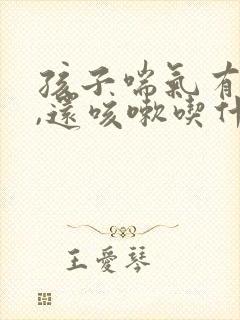 孩子喘氣有
,還咳嗽喫什
王愛琴